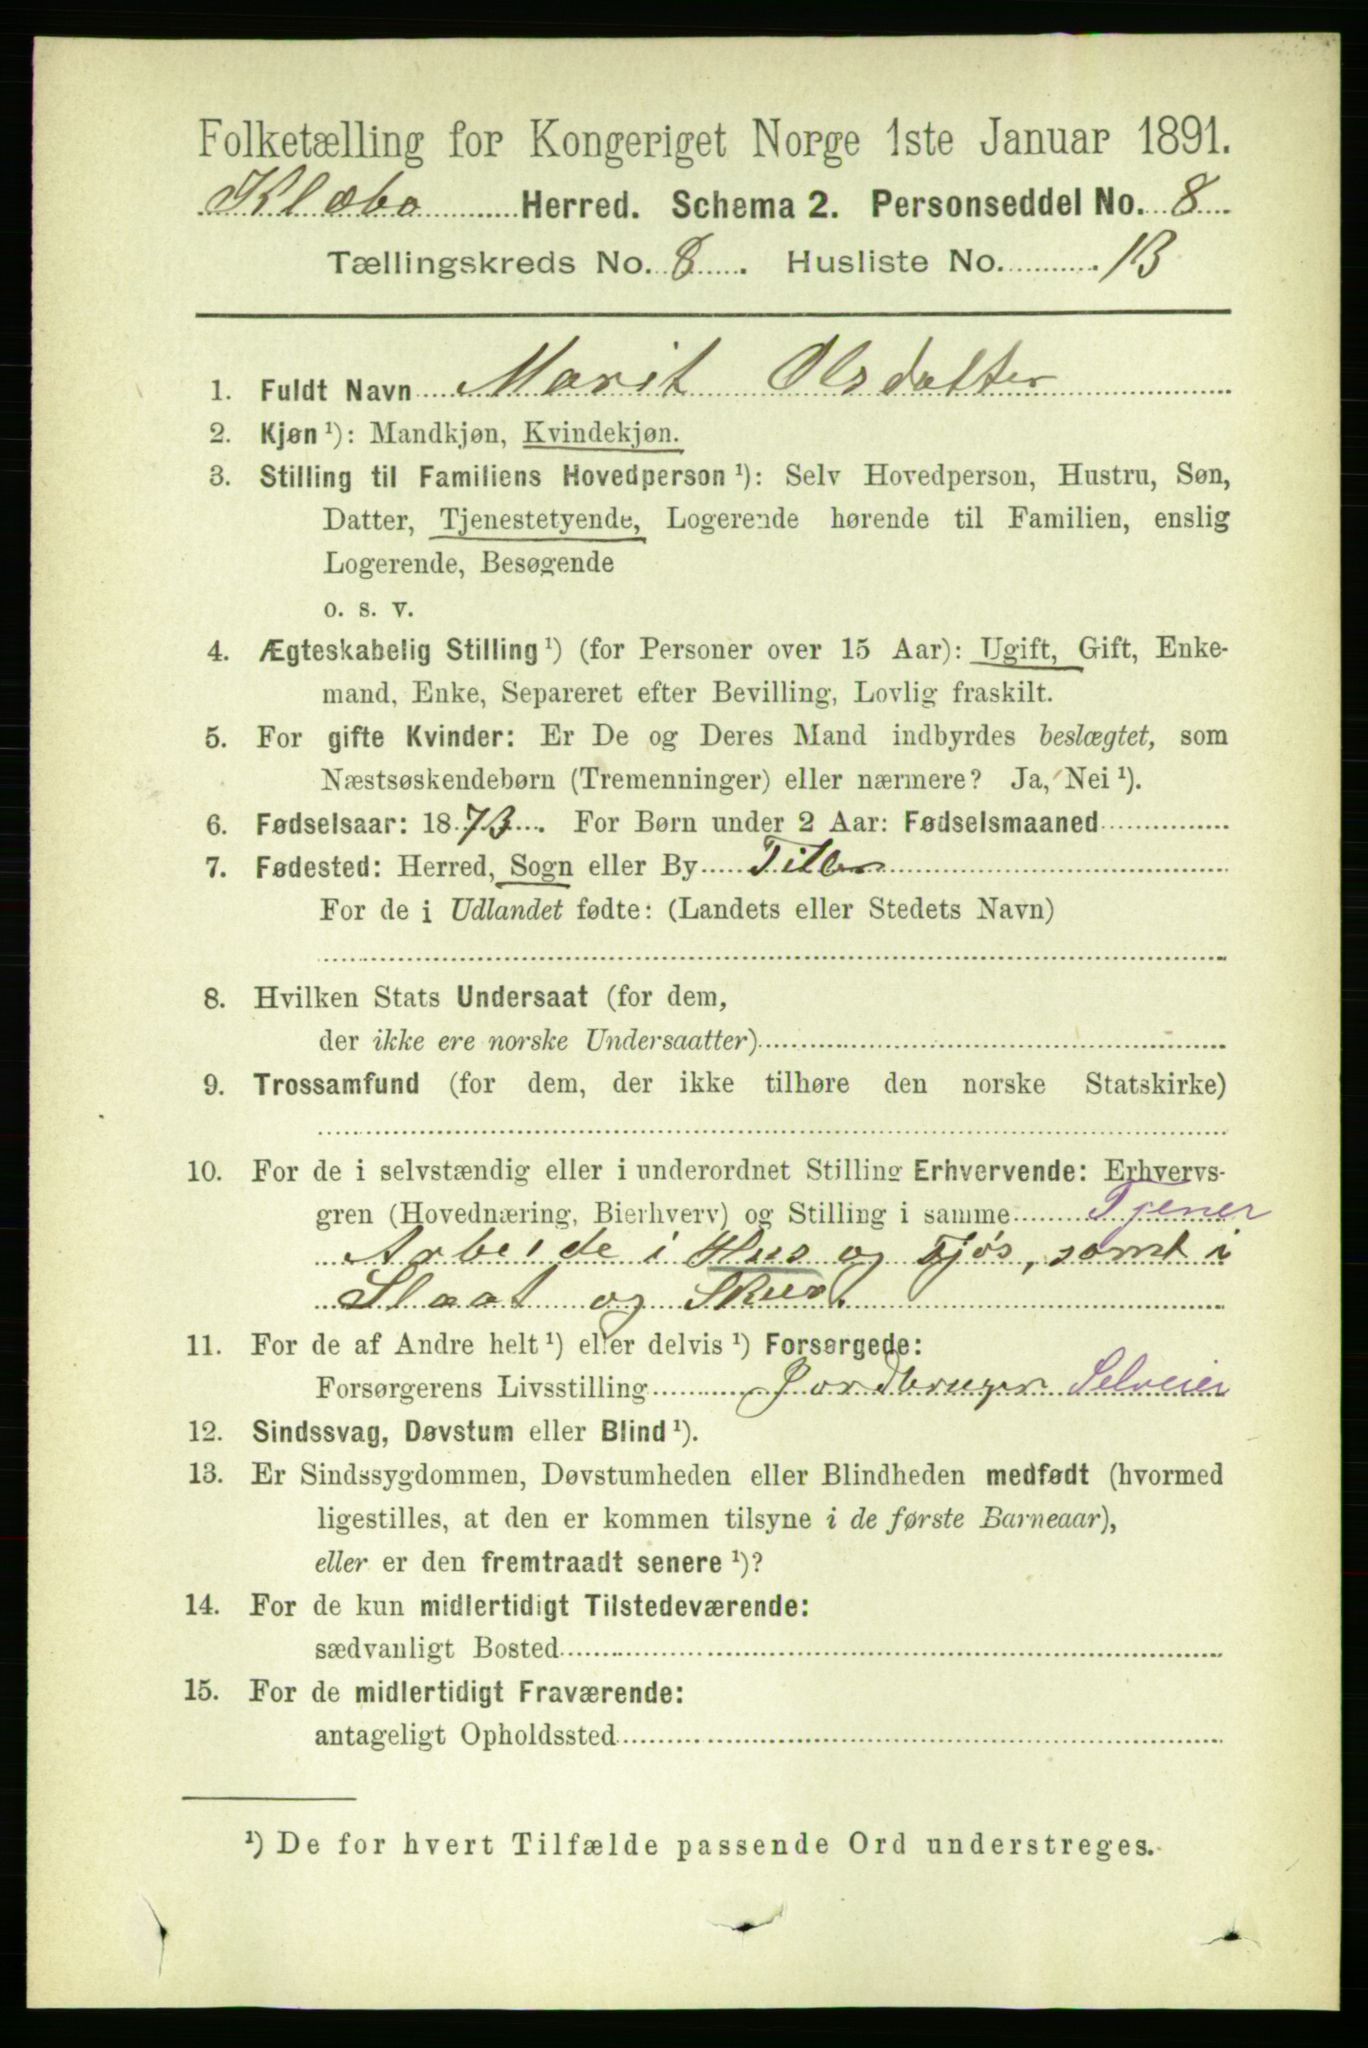 Folketælling for Kongeriget Norge 1ste Januar 1891.
Klæbo Herred. Schema 2. Personseddel No. 8
Tællingskreds No. 8. Husliste No. 13
1. Fuldt Navn Marit Olsdatter
2. Kjøn ¹): Mandkjøn, Kvindekjøn.
3. Stilling til Familiens Hovedperson ¹): Selv Hovedperson, Hustru, Søn,
Datter, Tjenestetyende, Logerende hørende til Familien, enslig
Logerende, Besøgende
o. s. v.
4. Ægteskabelig Stilling ¹) (for Personer over 15 Aar): Ugift, Gift, Enke-
mand, Enke, Separeret efter Bevilling, Lovlig fraskilt.
5. For gifte Kvinder: Er De og Deres Mand indbyrdes beslægtet, som
Næstsøskendebørn (Tremenninger) eller nærmere? Ja, Nei ¹).
6. Fødselsaar: 1873. For Børn under 2 Aar: Fødselsmaaned
7. Fødested: Herred, Sogn eller By Tiller
For de i Udlandet fødte: (Landets eller Stedets Navn)
8. Hvilken Stats Undersaat (for dem,
der ikke ere norske Undersaatter)
9. Trossamfund (for dem, der ikke tilhøre den norske Statskirke)
10. For de i selvstændig eller i underordnet Stilling Erhvervende: Erhvervs-
gren (Hovednæring, Bierhverv) og Stilling i samme Tjener
Arbeide i Hus og Fjøs, samt i
Slaat og Skur.
11. For de af Andre helt ¹) eller delvis ¹) Forsørgede:
Forsørgerens Livsstilling Jordbruger Selveier
12. Sindssvag, Døvstum eller Blind ¹).
13. Er Sindssygdommen, Døvstumheden eller Blindheden medfødt (hvormed
ligestilles, at den er kommen tilsyne i de første Barneaar),
eller er den fremtraadt senere ¹)?
14. For de kun midlertidigt Tilstedeværende:
sædvanligt Bosted
15. For de midlertidigt Fraværende:
antageligt Opholdssted
¹) De for hvert Tilfælde passende Ord understreges.